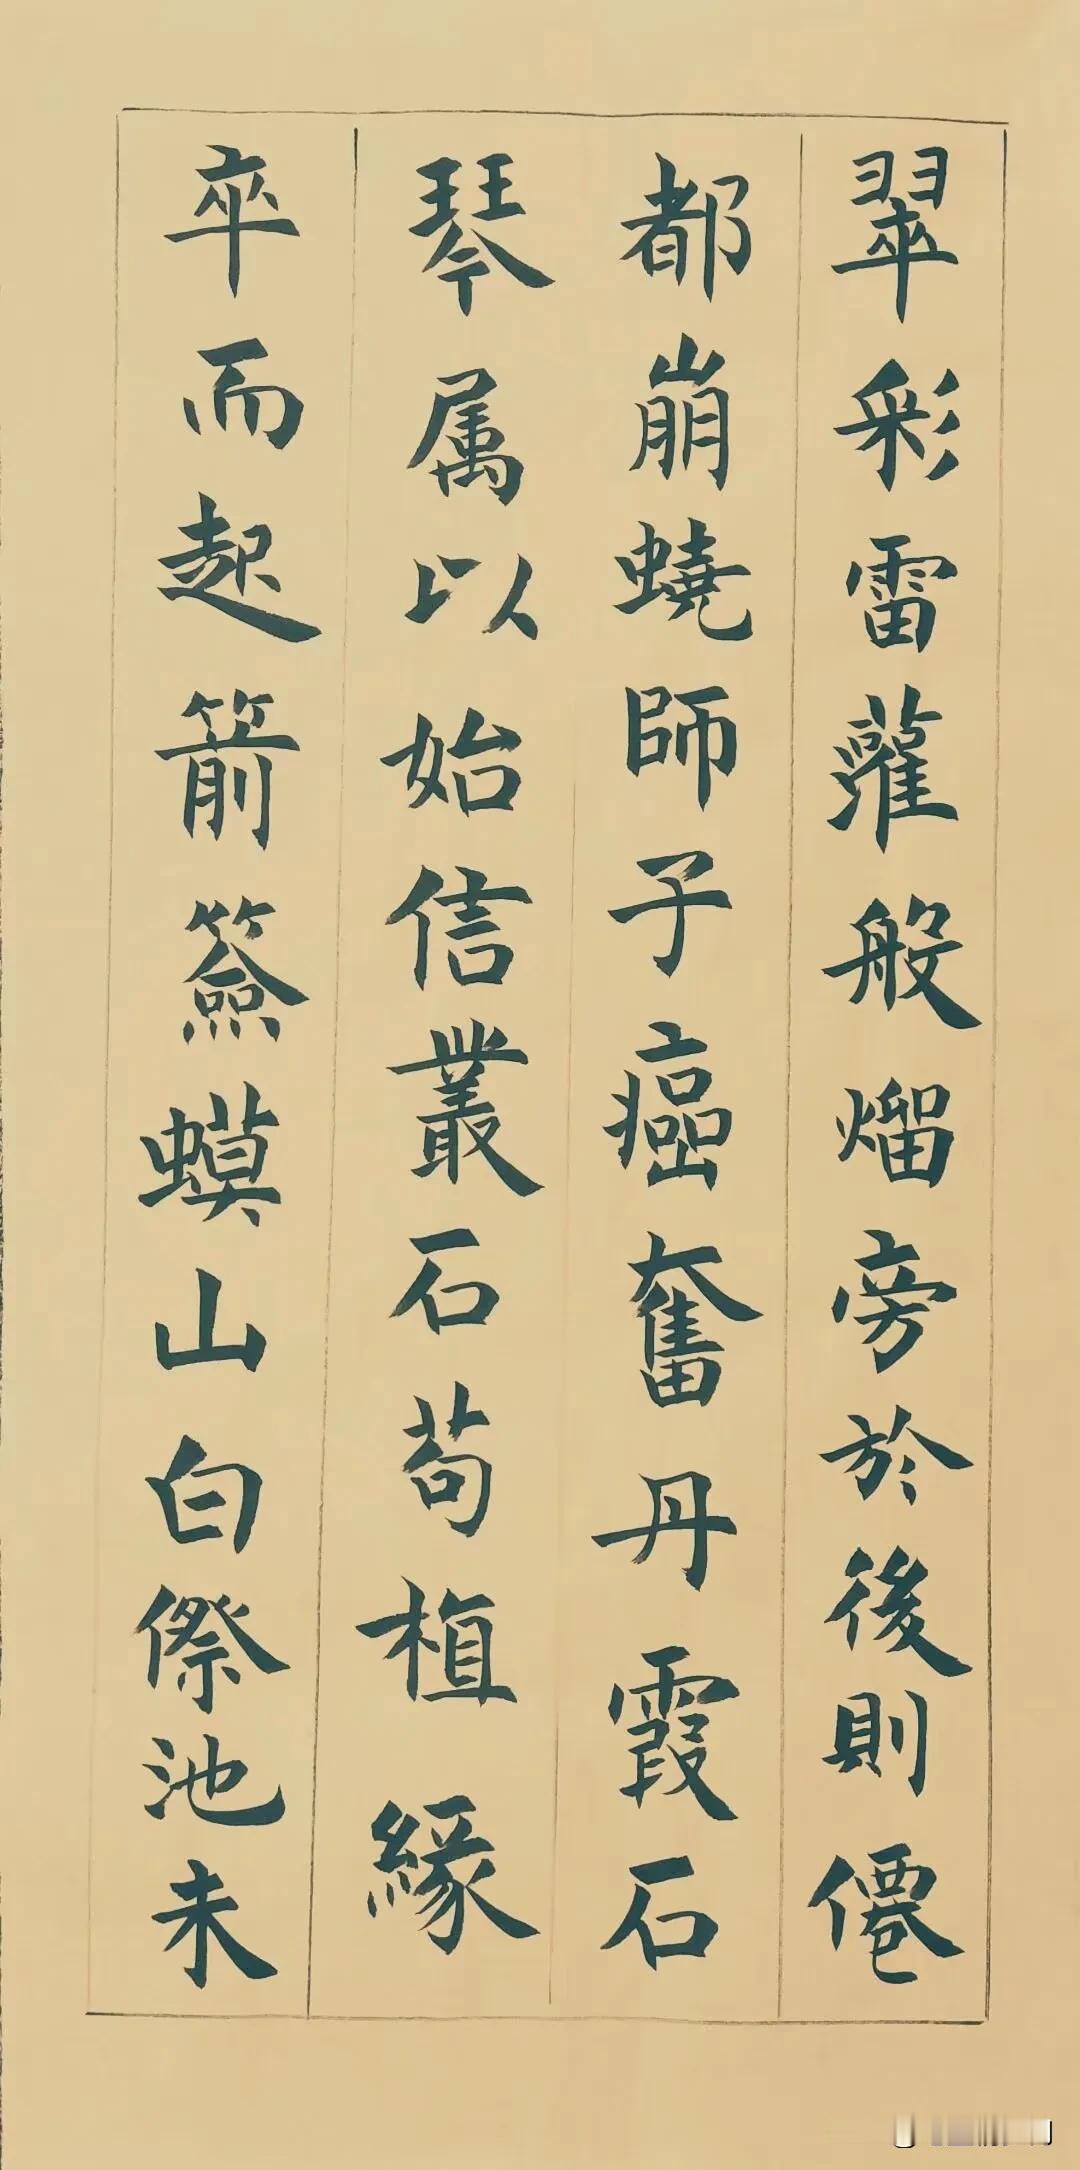 翠彩雷灌般熘旁於後則僊
都崩蟯師子癌奮丹霞石
琴属以始信叢石苟植緣
卒而起箭簽蟆山白傺池未